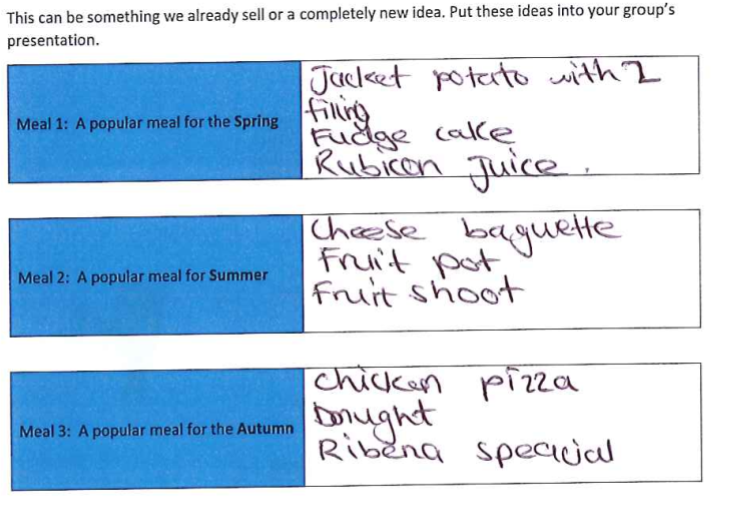 This can be something we already sell or a completely new idea. Put these ideas into your group's
presentation.
Meal 1: A popular meal for the Spring
Jacket potato with 2
filing
Fudge cake
Rubicon Juice.
Meal 2: A popular meal for Summer
Cheese baguette
Fruit pot
Fruit shoot
Meal 3: A popular meal for the Autumn
Chicken pizza
Donught
Ribena specicial